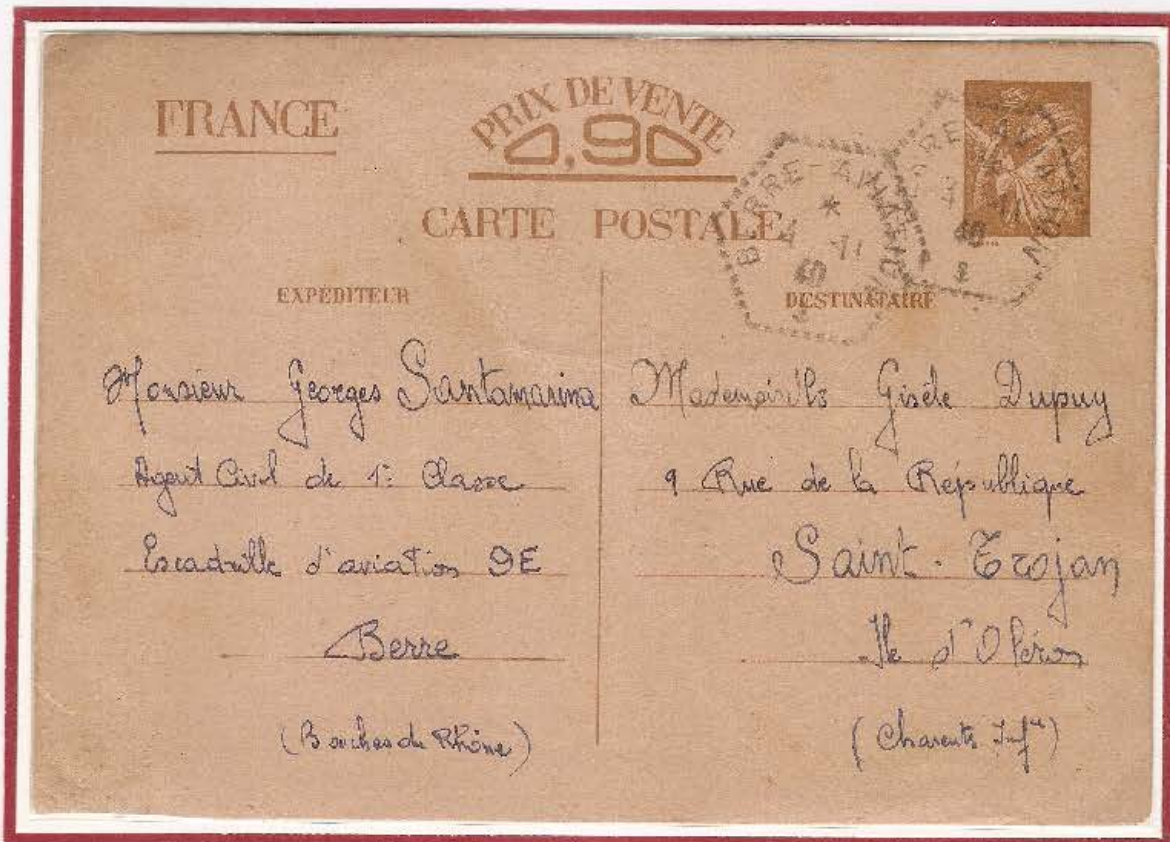 FRANCE
PRIX DE VENTE
0,90
CARTE POSTALE
BERRE-AVIATION
4 -11
40
EXPÉDITEUR
Monsieur Georges Santamarina
Agent Civil de 1e Classe
Escadrille d'aviation 9E
Berre
(Bouches du Rhône)
DESTINATAIRE
Mademoiselle Gisèle Dupuy
9 Rue de la République
Saint-Trojan
Ile d'Oléron
(Charente Infre)